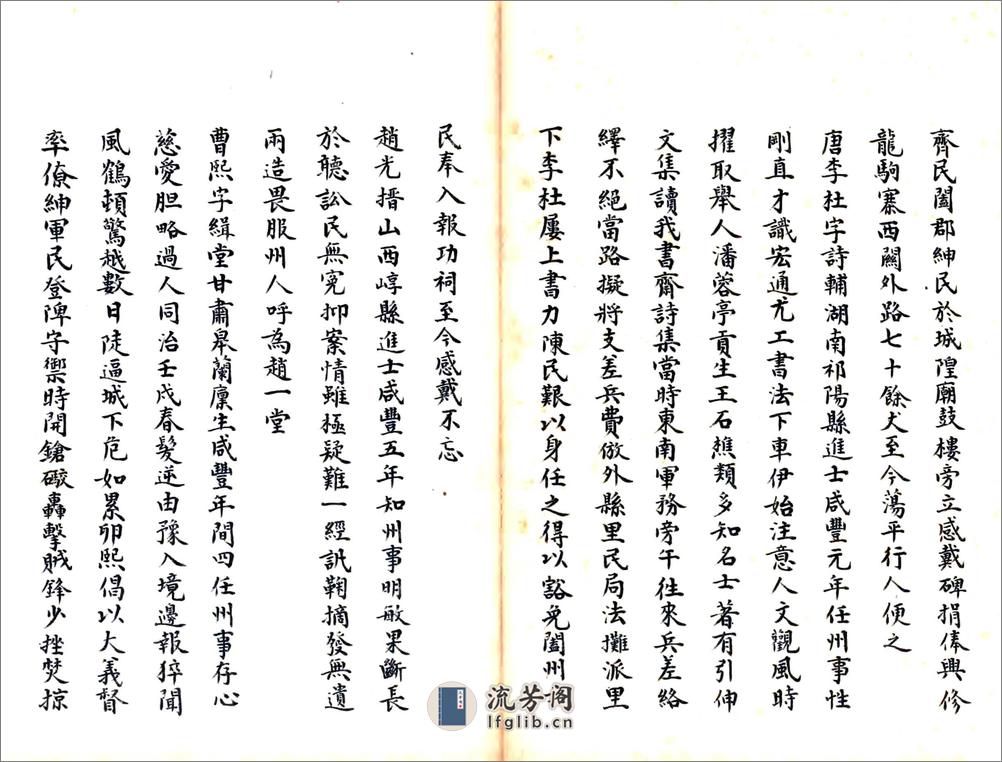 齊民闔郡紳民於城隍廟鼓樓旁立感戴碑捐俸興修
龍駒寨西關外路七十餘丈至今蕩平行人便之
唐李杜字詩輔湖南祁陽縣進士咸豐元年任州事性
剛直才識宏通尤工書法下車伊始注意人文觀風時
擢取舉人潘蓉亭貢生王石樵類多知名士著有引伸
文集讀我書齋詩集當時東南軍務旁午往來兵差絡
繹不絕當路擬將支差兵費倣外縣里民局法攤派里
下李杜屢上書力陳民艱以身任之得以豁免闔州
民奉入報功祠至今感戴不忘
趙光搢山西崞縣進士咸豐五年知州事明敏果斷長
於聽訟民無冤抑案情雖極疑難一經訊鞫摘發無遺
兩造畏服州人呼為趙一堂
曹熙字緝堂甘肅皋蘭廩生咸豐年間四任州事存心
慈愛胆略過人同治壬戌春髮逆由豫入境邊報猝聞
風鶴頓驚越數日陡逼城下危如累卵熙倡以大義督
率僚紳軍民登陴守禦時開鎗礮轟擊賊鋒少挫焚掠
流芳閣
lfglib.cn